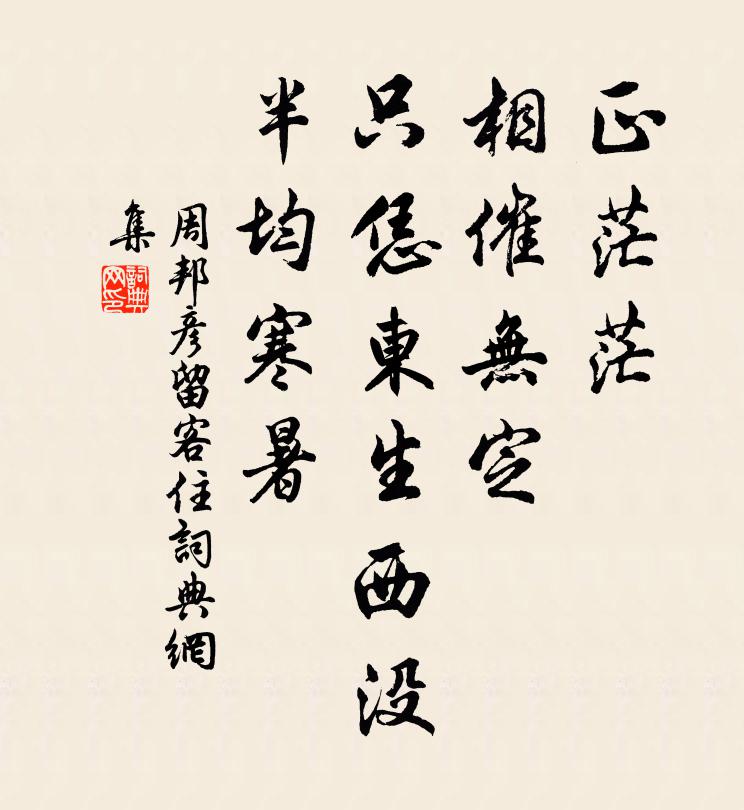 正茫茫
相催無定
只恁東生西没
半均寒暑
周邦彦留客住詞典網
集
詞典
网印